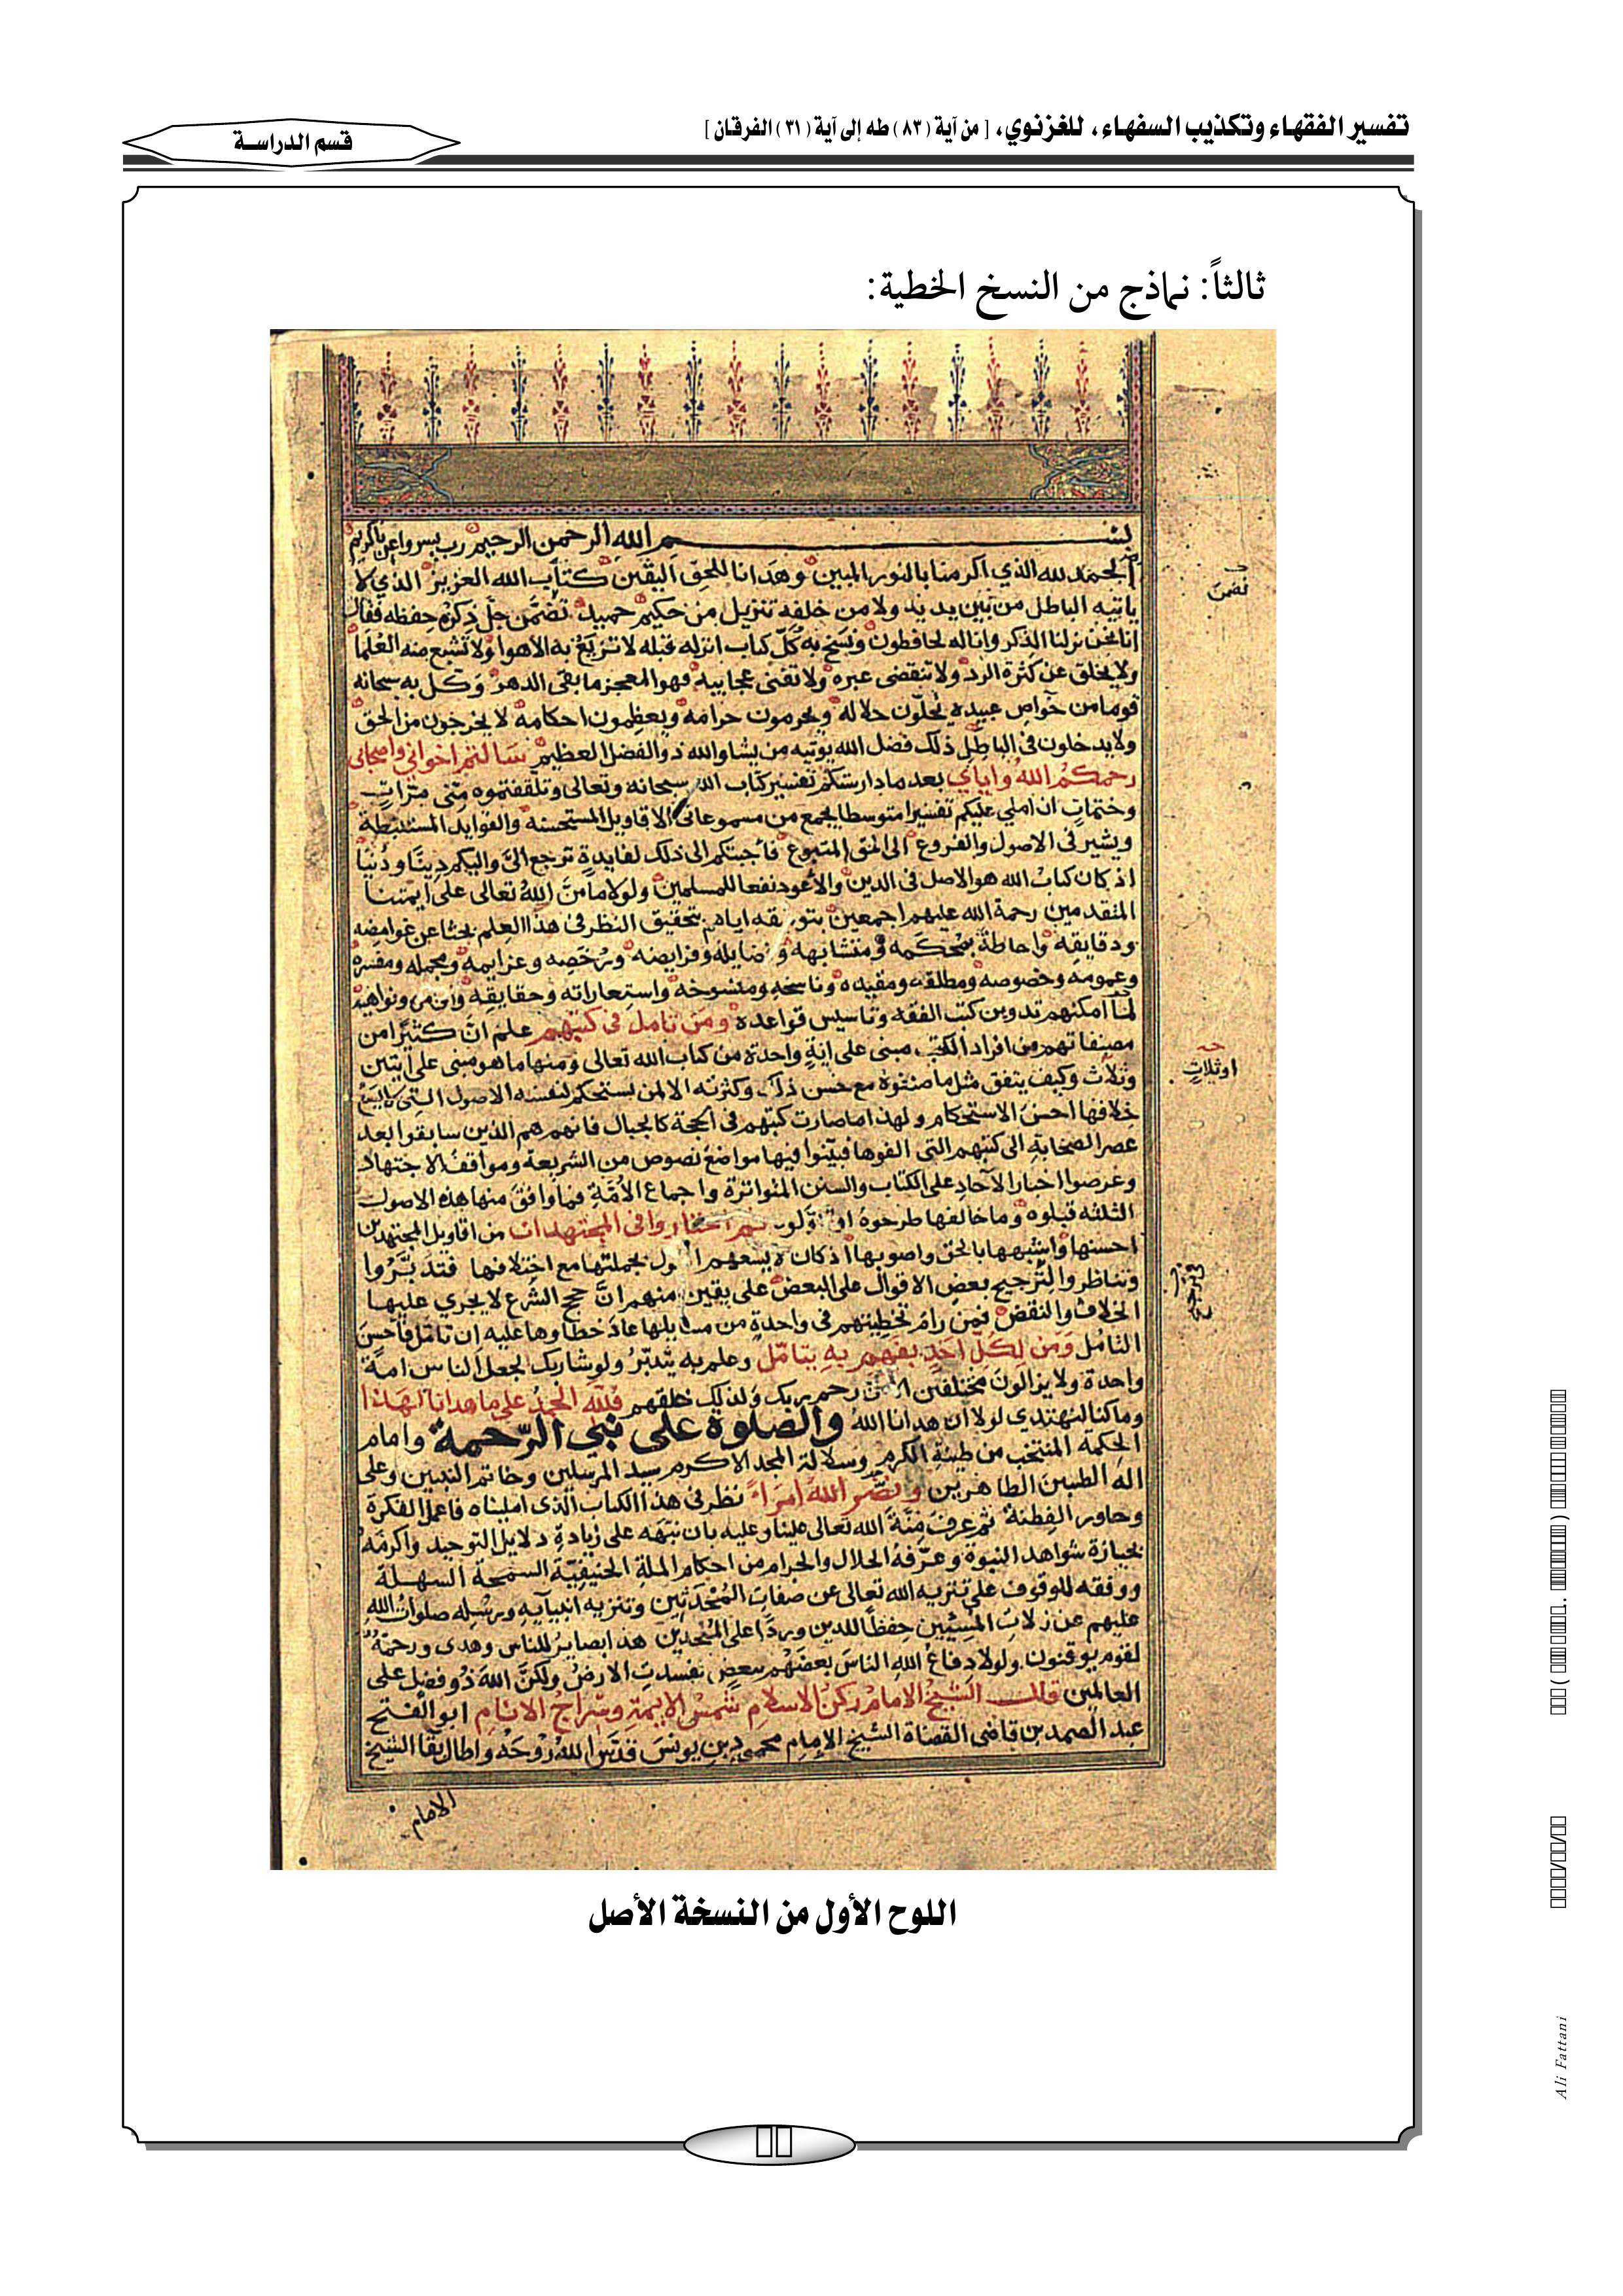 تفسير الفقهاء وتكذيب السفهاء، للغزنوي، [ من آية (٨٣) طه إلى آية (٣١) الفرقان ]
قسم الدراسة
ثالثاً: نماذج من النسخ الخطية:
بسم الله الرحمن الرحيم رب يسر واعن ياكريم
الحمد لله الذي اكرمنا بالنور المبين وهدانا للحق اليقين كتاب الله العزيز الذي لا
ياتيه الباطل من بين يديه ولا من خلفه تنزيل من حكيم حميد تضمن جل ذكره حفظه فقال
انا نحن نزلنا الذكر وانا له لحافظون ونسخ به كل كتاب انزله قبله لا تزيغ به الاهوا ولا تشبع منه العلما
ولا يخلق عن كثرة الرد ولا تنقضى عبره ولا تفنى عجايبه فهو المعجز ما بقى الدهر وكل به سبحانه
قوما من خواص عبيده يحلون حلاله ويحرمون حرامه ويعظمون احكامه لا يخرجون من الحق
ولا يدخلون فى الباطل ذلك فضل الله يوتيه من يشا والله ذو الفضل العظيم سالتم اخواني واصحابى
رحمكم الله واياي بعد ما دارستكم تفسير كتاب الله سبحانه وتعالى وتلقفتموه منى مرات
وختمات ان املي عليكم تفسيرا متوسطا يجمع من مسموعاتى الاقاويل المستحسنة والفوايد المستنبطة
ويشير فى الاصول والفروع الى الحق المتبوع فاجبتكم الى ذلك لفايدة ترجع الى واليكم دينا ودنيا
اذ كان كتاب الله هو الاصل فى الدين والاعود نفعا للمسلمين ولولا ما من الله تعالى على ايمتنا
المتقدمين رحمة الله عليهم اجمعين بتوفيقه اياهم بتحقيق النظر فى هذا العلم بحثا عن غوامضه
ودقايقه واحاطة بمحكمه ومتشابهه وفضايله وفرايضه ورخصه وعزايمه ومجمله ومفسره
وعمومه وخصوصه ومطلقه ومقيده وناسخه ومنسوخه واستعاراته وحقايقه واوامره ونواهيه
لما امكنهم تدوين كتب الفقه وتاسيس قواعده ومن تامل فى كتبهم علم ان كثيرا من
مصنفاتهم من افراد الكتب مبنى على اية واحدة من كتاب الله تعالى ومنها ما هو مبنى على ايتين
وثلاث وكيف يتفق مثل ما صنفوه مع حسن ذلك وكثرته الا لمن يستحكم لنفسه الاصول التى
خلافها احسن الاستحكام ولهذا ما صارت كتبهم فى الحجة كالجبال فانهم هم الذين سابقوا بعد
عصر الصحابة الى كتبهم التى الفوها فبينوا فيها مواضع نصوص من الشريعة ومواقف الاجتهاد
وعرضوا اخبار الآحاد على الكتاب والسنن المتواترة واجماع الامة فما وافق منها هذه الاصول
الثلثه قبلوه وما خالفها طرحوه ثم اختاروا فى المجتهدات من اقاويل المجتهدين
احسنها واشبهها بالحق واصوبها اذ كان لا يسعهم القول بجملتها مع اختلافها فتدبروا
وتناظروا لترجيح بعض الاقوال على البعض على يقين منهم ان حجج الشرع لا يجري عليها
الخلاف والنقض فمن رام تخطيتهم فى واحدة من مسايلها عاد خطاوها عليه ان تامل فاحسن
التامل ومن لكل احد بفهم به يتامل وعلم به يتدبر ولو شا ربك لجعل الناس امة
واحدة ولا يزالون مختلفين الا من رحم ربك ولذلك خلقهم فلله الحمد على ما هدانا لهذا
وما كنا لنهتدي لولا ان هدانا الله والصلوة على نبي الرحمة وامام
الحكمة المنتخب من طينة الكرم وسلالة المجد الاكرم سيد المرسلين وخاتم النبيين وعلى
اله الطيبين الطاهرين ونضر الله امراء نظر فى هذا الكتاب الذى امليناه فاعمل الفكرة
وحاور الفطنة ثم عرف منة الله تعالى علينا وعليه بان نبهه على زيادة دلايل التوحيد واكرمه
بحيازة شواهد النبوة وعرفه الحلال والحرام من احكام الملة الحنيفية السمحة السهلة
ووفقه للوقوف على تنزيه الله تعالى عن صفات المحدثين وتنزيه انبيايه ورسله صلوات الله
عليهم عن زلات المسيئين حفظا للدين وردا على الملحدين هذا بصاير للناس وهدى ورحمة
لقوم يوقنون ولولا دفاع الله الناس بعضهم ببعض لفسدت الارض ولكن الله ذو فضل على
العالمين قال الشيخ الامام ركن الاسلام شمس الايمة وسراج الانام ابو الفتح
عبد الصمد بن قاضى القضاة الشيخ الامام محمود بن يونس قدس الله روحه واطال بقا الشيخ
الامام
تضمن
اوثلاث
اللوح الأول من النسخة الأصل
Ali Fattani